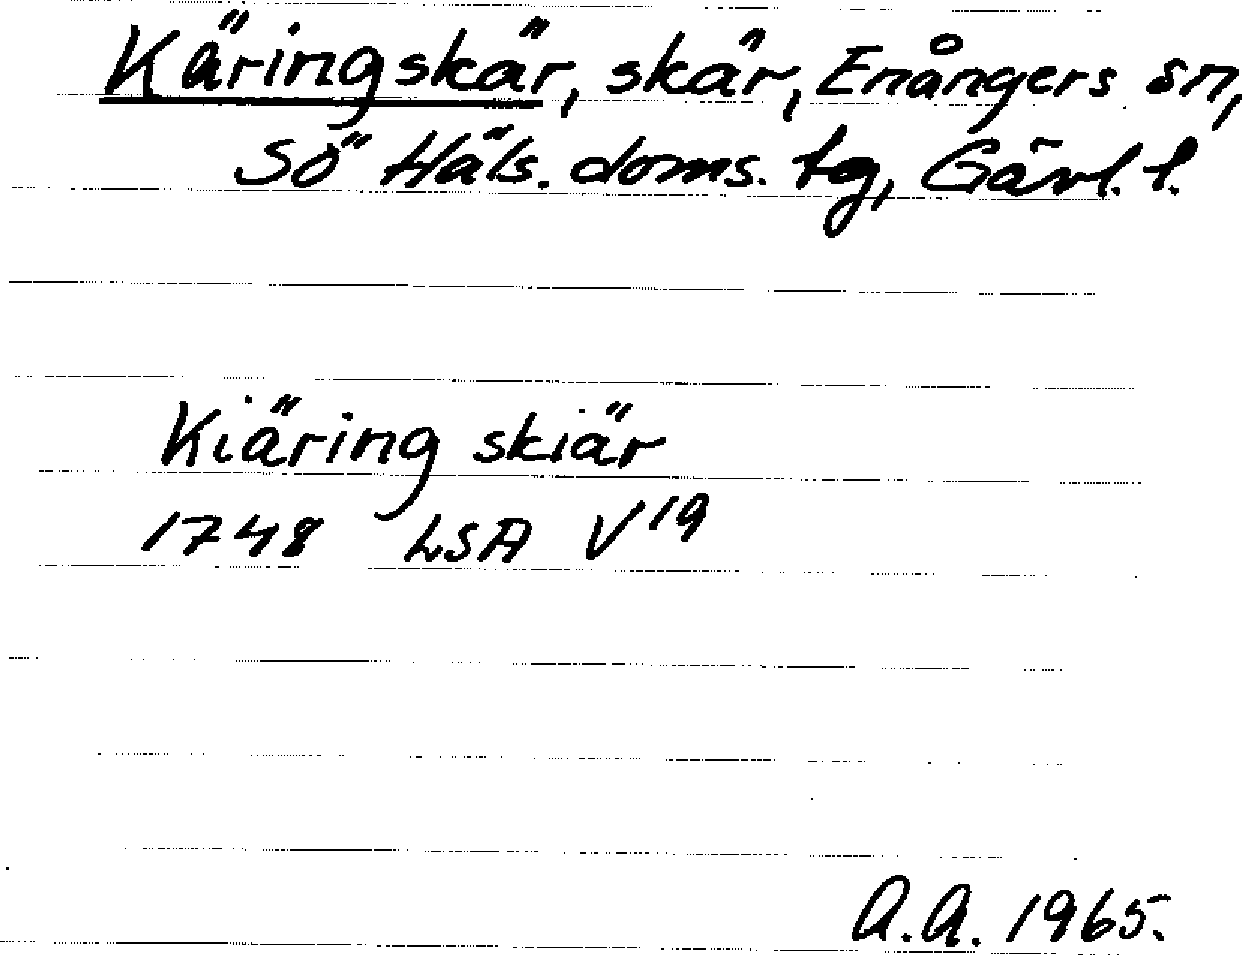 Käringskär, skär, Enångers sn,
Sö Häls. doms. tg, Gävl. l.
Kiäring skiär
1748 LSA V19
A.A. 1965.